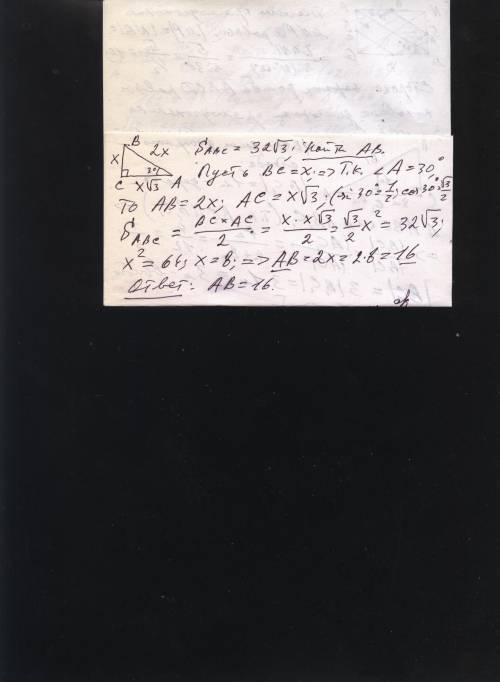 B
x 2x S_ABC = 32√3; найти AB.
30° Пусть BC = x; => т.к. ∠A = 30°
C x√3 A
то AB = 2x; AC = x√3; (sin 30° = 1/2; cos 30° = √3/2
S_ABC = AC×AC/2 = x·x√3/2 = √3/2 x² = 32√3;
x² = 64; x = 8; => AB = 2x = 2·8 = 16
Ответ: AB = 16.